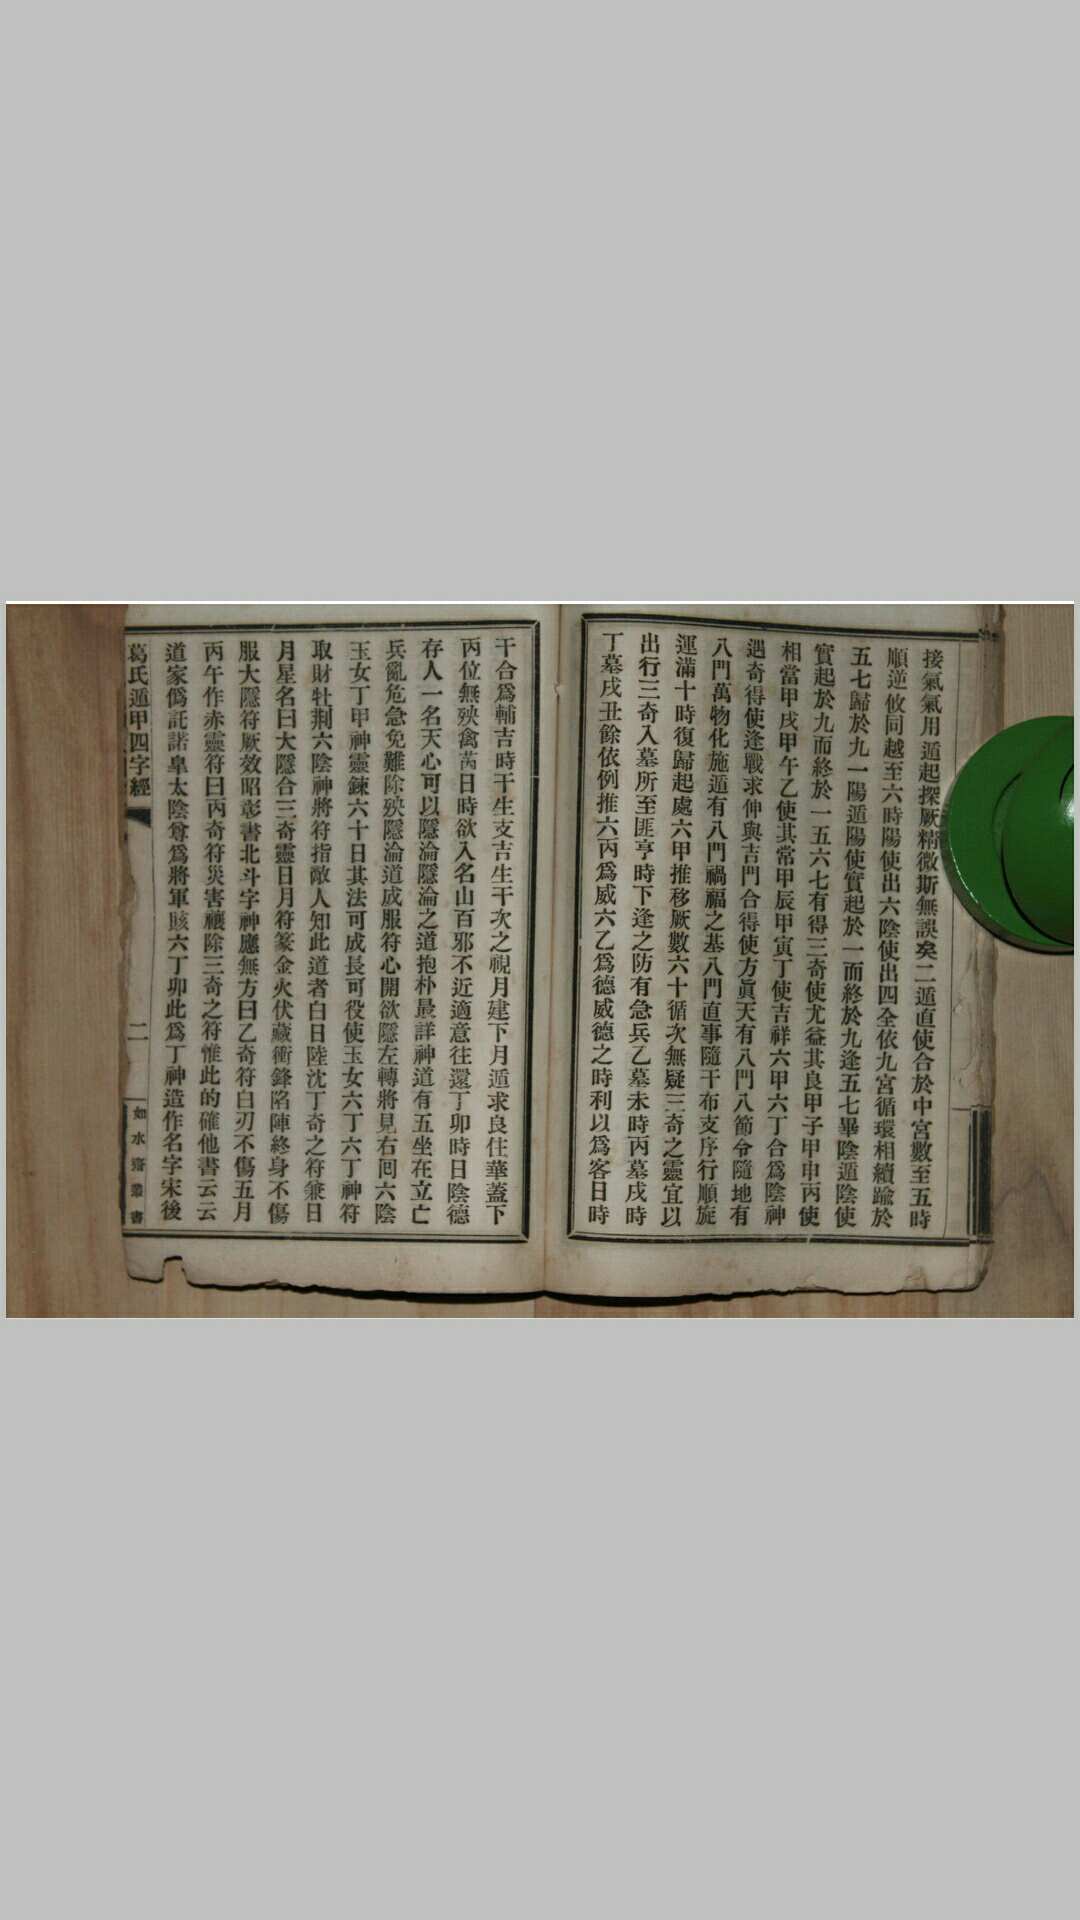 接氣氣用遁起探厥精微斯無誤矣二遁直使合於中宮數至五時
順逆攸同越至六時陽使出六陰使出四全依九宮循環相續踰於
五七歸於九一陽遁陽使實起於一而終於九逢五七畢陰遁陰使
實起於九而終於一五六七有得三奇使尤益其良甲子甲申丙使
相當甲戌甲午乙使其常甲辰甲寅丁使吉祥六甲六丁合爲陰神
遇奇得使逢戰求伸與吉門合得使方眞天有八門八節令隨地有
八門萬物化施遁有八門禍福之基八門直事隨干布支序行順旋
運滿十時復歸起處六甲推移厥數六十循次無疑三奇之靈宜以
出行三奇入墓所至匪亨時下逢之防有急兵乙墓未時丙墓戌時
丁墓戌丑餘依例推六丙爲威六乙爲德威德之時利以爲客日時
干合爲輔吉時干生支吉生干次之視月建下月遁求良住華蓋下
丙位無殃禽芮日時欲入名山百邪不近適意往還丁卯時日陰德
存人一名天心可以隱淪隱淪之道抱朴最詳神道有五坐在立亡
兵亂危急免難除殃隱淪道成服符心開欲隱左轉將見右囘六陰
玉女丁甲神靈鍊六十日其法可成長可役使玉女六丁六丁神符
取財牡荆六陰神將符指敵人知此道者白日陸沈丁奇之符兼日
月星名曰大隱合三奇靈日月符篆金火伏藏衝鋒陷陣終身不傷
服大隱符厥效昭彰書北斗字神應無方曰乙奇符白刃不傷五月
丙午作赤靈符曰丙奇符災害禳除三奇之符惟此的確他書云云
道家僞託諾皐太陰尊爲將軍賅六丁卯此爲丁神造作名字宋後
葛氏遁甲四字經
二
如水齋叢書